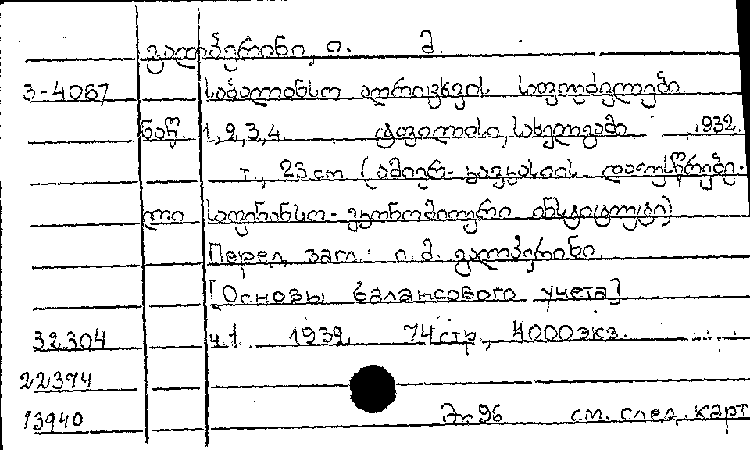 გალპერინი, ი. მ.
3-4067 საბალანსო აღრიცხვის საფუძვლები
ნაწ. 1,2,3,4. ტფილისი, სახელგამი ,1932.
т., 23 cm (ამიერ-კავკასიის დაუსწრებე-
ლი საფინანსო-ეკონომიური ინსტიტუტი)
Перед загл.: ი. მ. გალპერინი
[Основы балансового учета]
32.304 ч.1 1932, 74 стр., 4000 экз.
22374
13940 96 см. след. карт